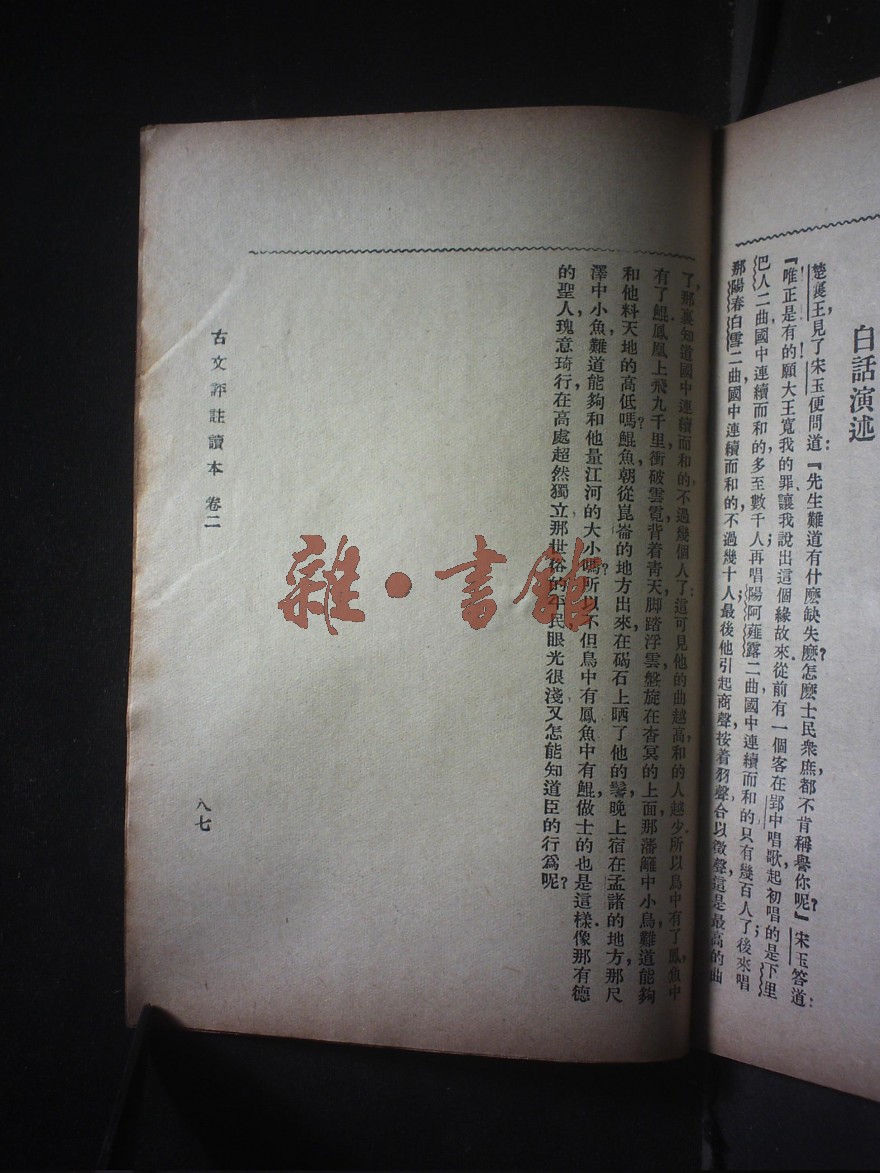 白話演述
楚襄王見了宋玉便問道：『先生難道有什麽缺失麽？怎麽士民衆庶都不肯稱譽你呢？』宋玉答道：
『唯！正是！有的！願大王寬我的罪，讓我說出這個緣故來．從前有一個客在郢中唱歌，起初唱的是下里
巴人二曲，國中連續而和的，多至數千人；再唱陽阿薤露二曲，國中連續而和的只有幾百人了；後來唱
那陽春白雪二曲，國中連續而和的，不過幾十人；最後他引起商聲，按着羽聲，合以徵聲，這是最高的曲
了，那裏知道國中連續而和的，不過幾個人了：這可見他的曲越高，和的人越少．所以鳥中有了鳳，魚中
有了鯤．鳳凰上飛九千里，衝破雲霓，背着靑天，脚踏浮雲，盤旋在杳冥的上面，那藩籬中小鳥，難道能夠
和他料天地的高低嗎？鯤魚朝從崑崙的地方出來，在碣石上晒了他的鬐，晚上宿在孟諸的地方，那尺
澤中小魚，難道能夠和他量江河的大小嗎？所以不但鳥中有鳳，魚中有鯤，做士的也是這樣．像那有德
的聖人，瑰意琦行，在高處超然獨立，那世俗的平民，眼光很淺，又怎能知道臣的行爲呢？
古文評註讀本 卷二
八七
雜·書館